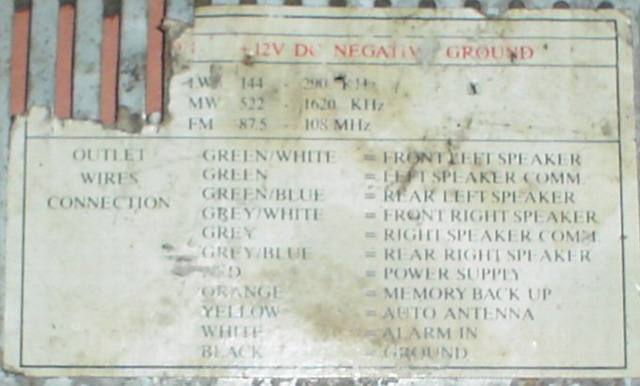 +12V DC NEGATIVE GROUND
LW 144 - 290 KHz
MW 522 - 1620 KHz
FM 87.5 - 108 MHz
OUTLET WIRES CONNECTION
GREEN/WHITE = FRONT LEFT SPEAKER
GREEN = LEFT SPEAKER COMM.
GREEN/BLUE = REAR LEFT SPEAKER
GREY/WHITE = FRONT RIGHT SPEAKER
GREY = RIGHT SPEAKER COMM.
GREY/BLUE = REAR RIGHT SPEAKER
RED = POWER SUPPLY
ORANGE = MEMORY BACK UP
YELLOW = AUTO ANTENNA
WHITE = ALARM IN
BLACK = GROUND